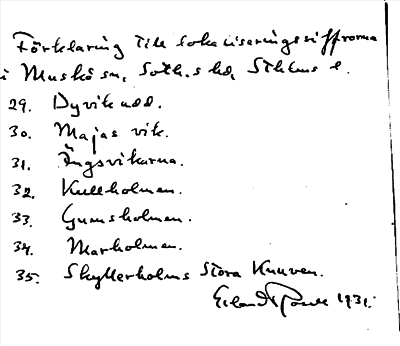 Förklaring till lokaliseringssiffrorna
i Muskö sn, Soth.s hd, Sthlms l.
29. Dyvik udd.
30. Majas vik.
31. Ängsvikarna.
32. Kullholman.
33. Gumsholmen.
34. Marholman.
35. Skyllerholms Stora Knuven.
Erland 1931.